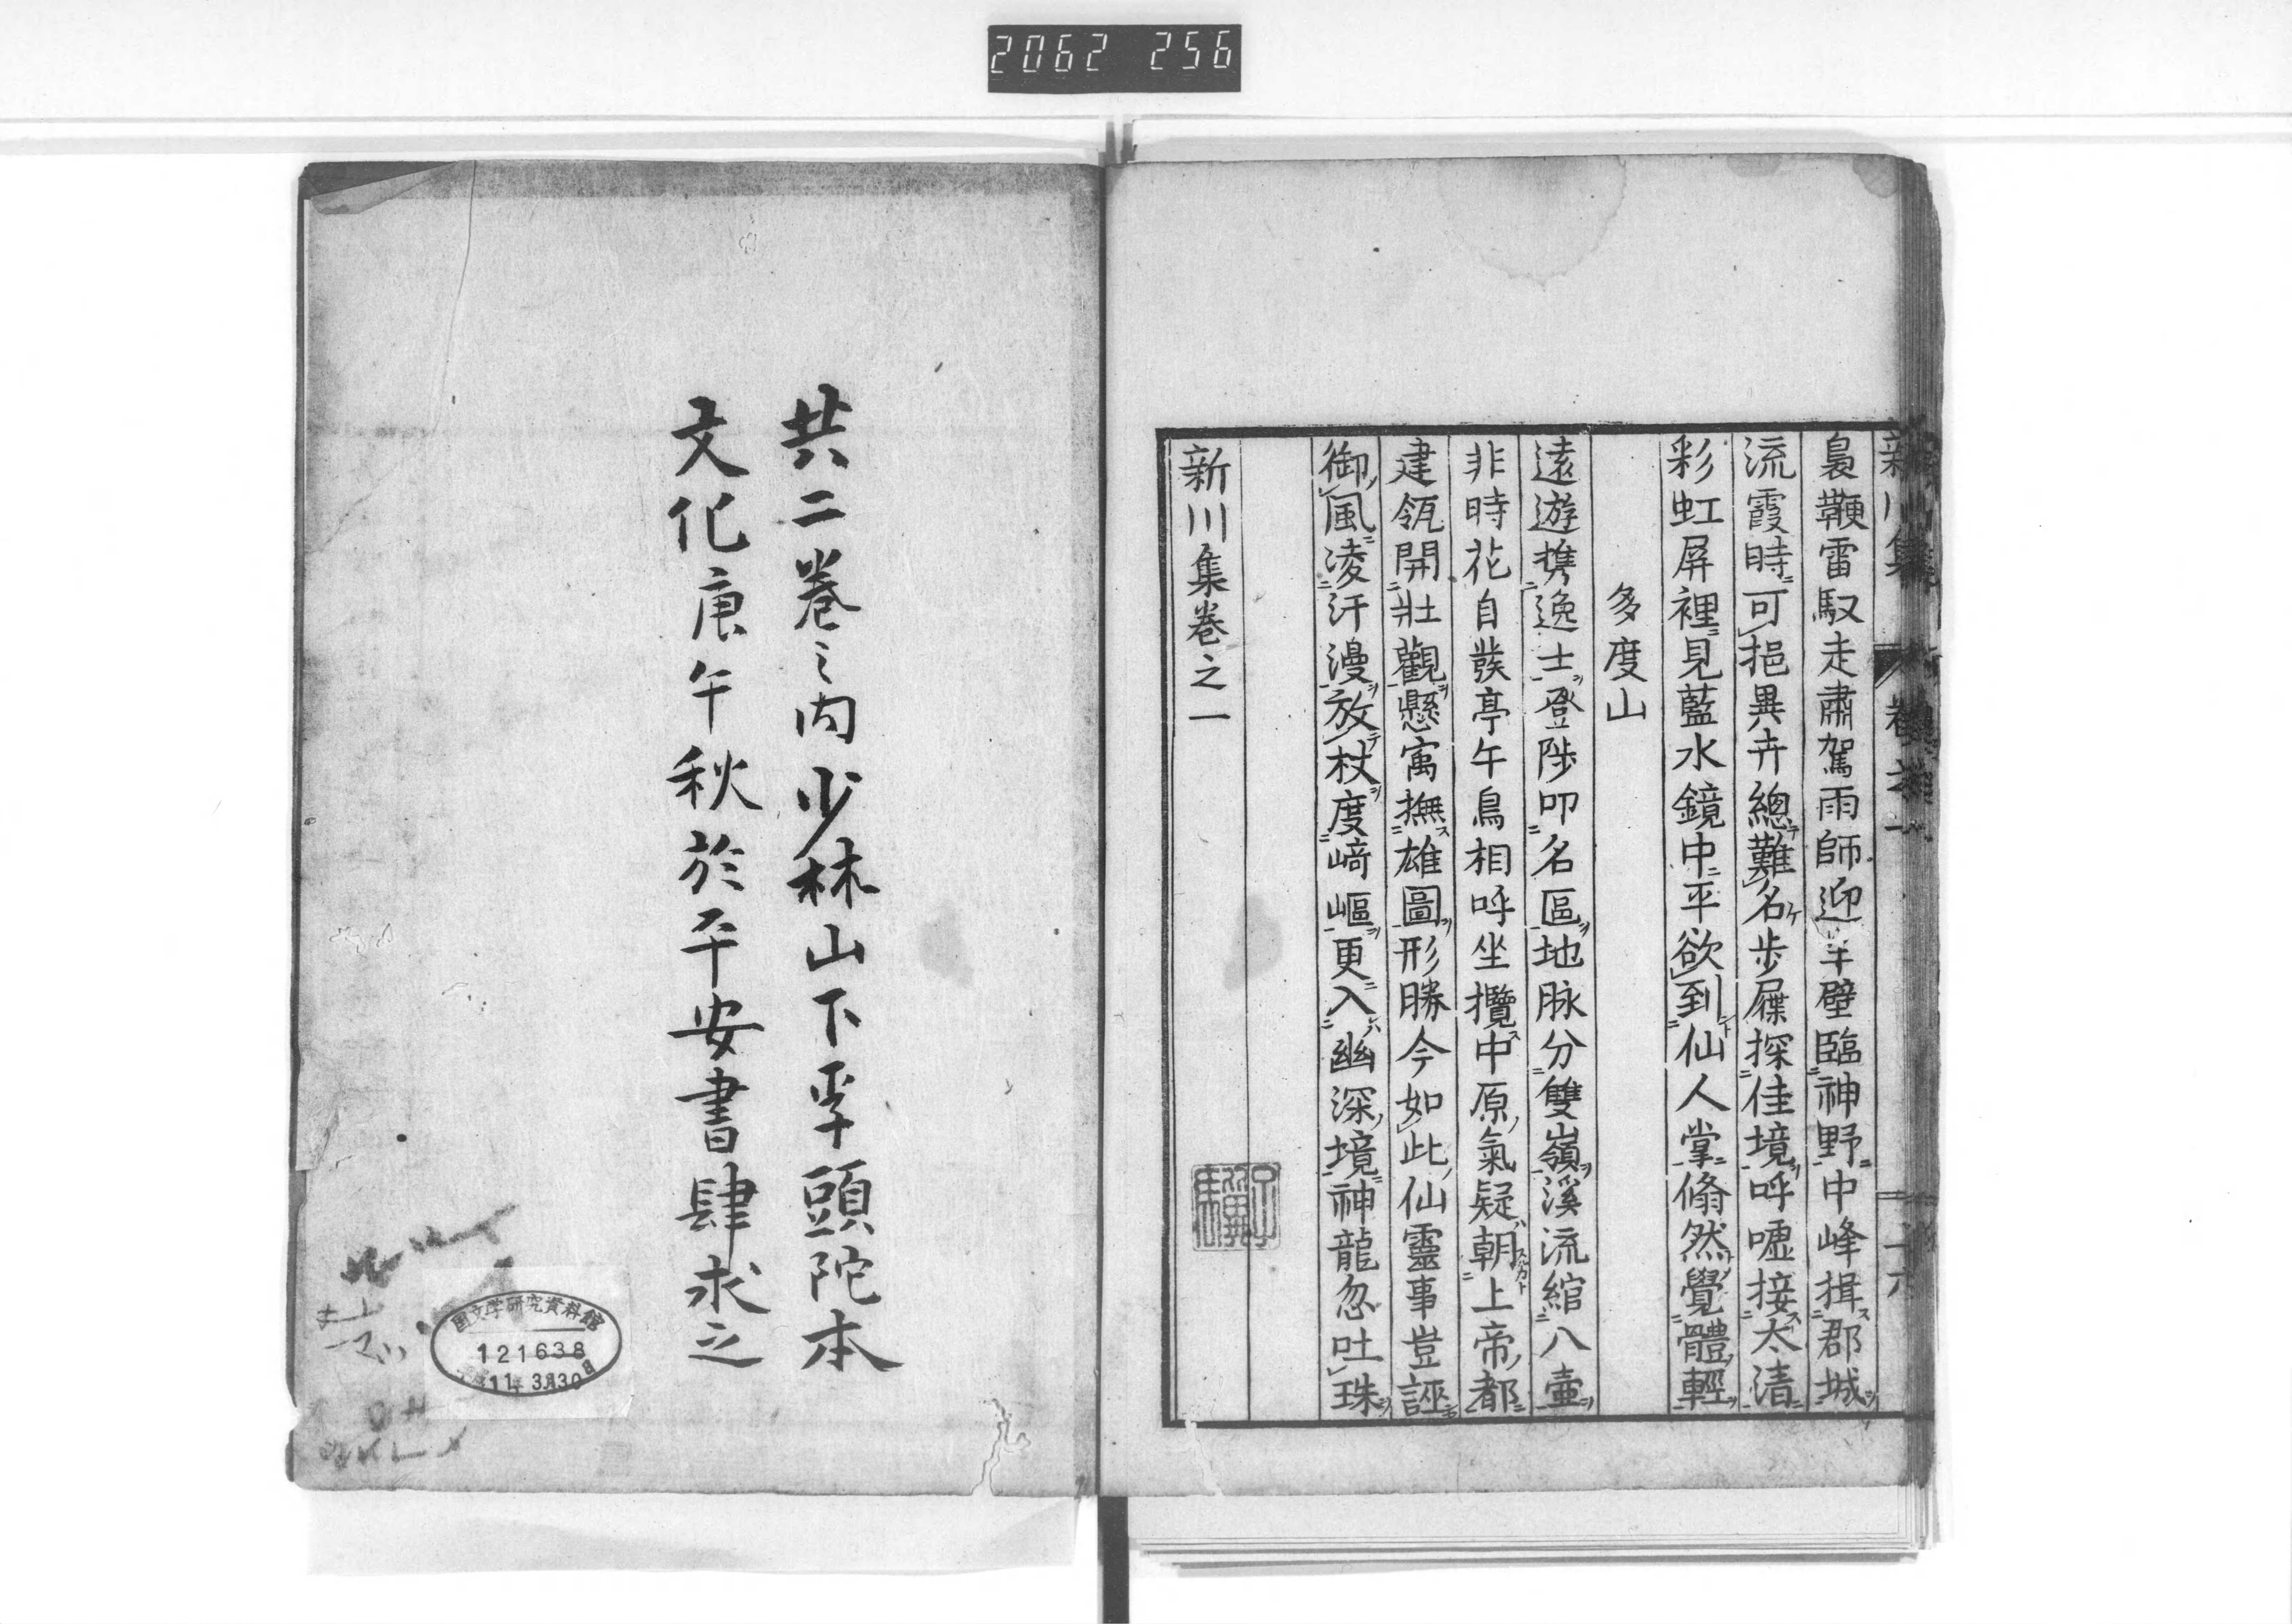 2062 256
裊鞭雷馭走肅駕雨師迎半壁臨神野中峰揖郡城
流霞時可挹異卉總難名步屧探佳境呼噓接太清
彩虹屏裡見藍水鏡中平欲到仙人掌翛然覺體輕
多度山
遠遊携逸士登陟叩名區地脉分雙嶺溪流綰八壺
非時花自發亭午鳥相呼坐攬中原氣疑朝上帝都
建瓴開壯觀懸寓撫雄圖形勝今如此仙靈事豈誣
御風凌汗漫放杖度﨑嶇更入幽深境神龍忽吐珠
新川集卷之一
共二卷之内少林山下平頭陀本
文化庚午秋於平安書肆求之
国文学研究資料館
121638
11年3月30日